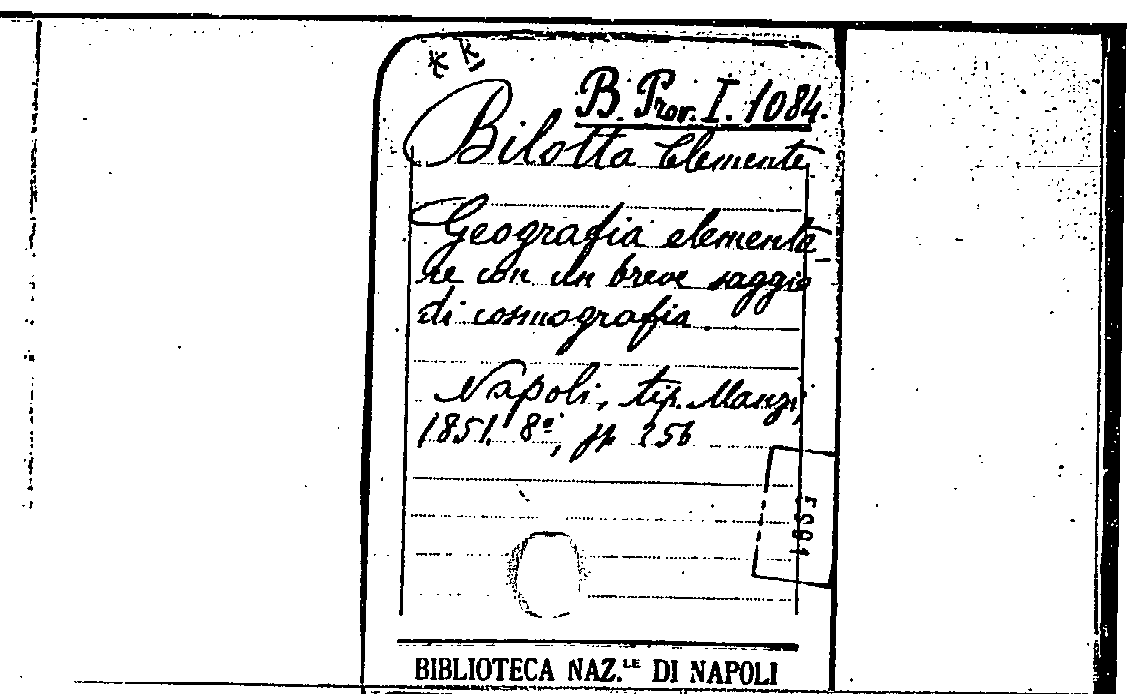 B. Prov. I. 1084.
Bilotta Clemente
Geografia elementa
re con un breve saggio
di cosmografia.
Napoli, tip. Manzi,
1851. 8º, pp. 256
BIBLIOTECA NAZ.LE DI NAPOLI